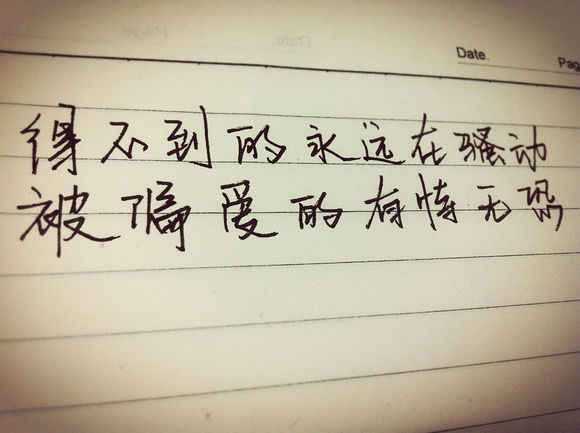 Date.
Pag
得不到的永远在骚动
被偏爱的有恃无恐